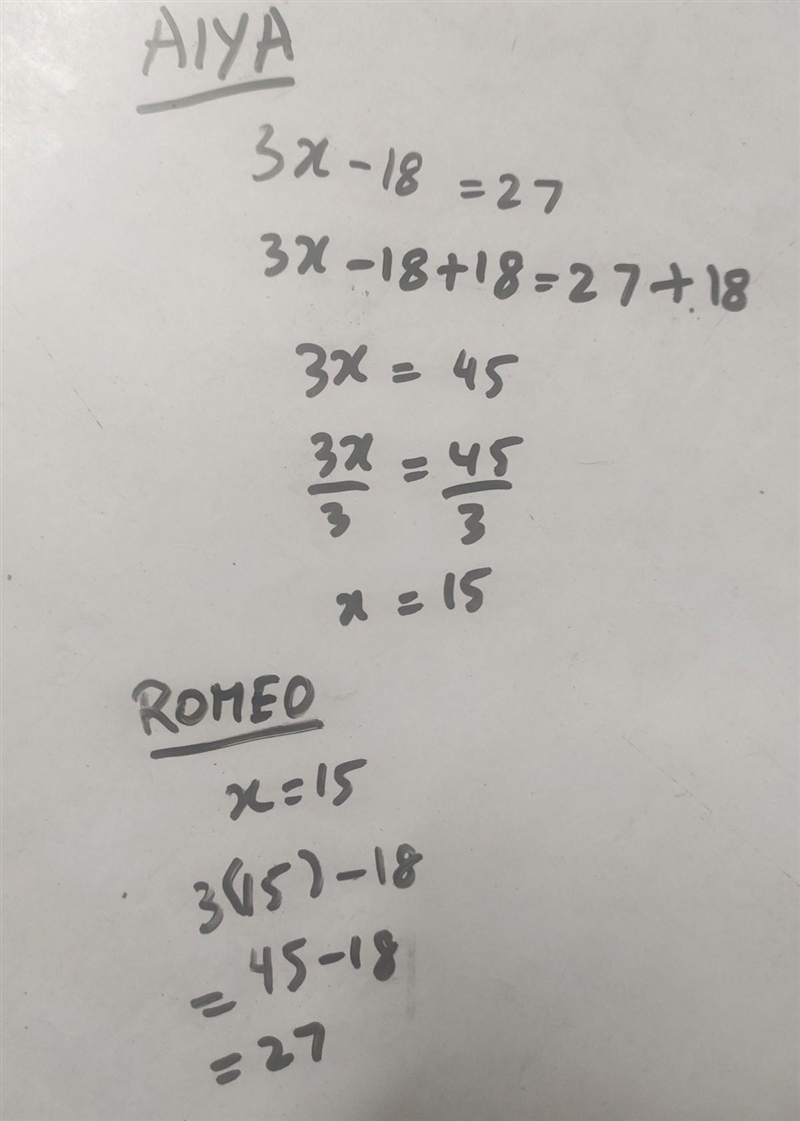 AIYA
3x - 18 = 27
3x - 18 + 18 = 27 + 18
3x = 45
3x/3 = 45/3
x = 15
ROMEO
x = 15
3(15) - 18
= 45 - 18
= 27